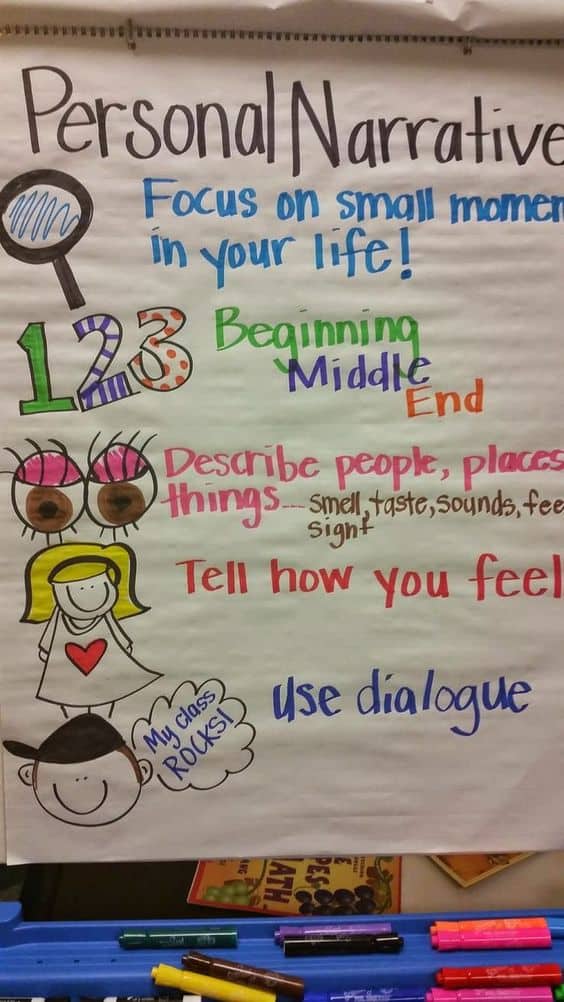 Personal Narrative
Focus on small momen
in your life!
123 Beginning
Middle
End
Describe people, places
things... smell, taste, sounds, fee
sight
Tell how you feel
use dialogue
My class
ROCKS!